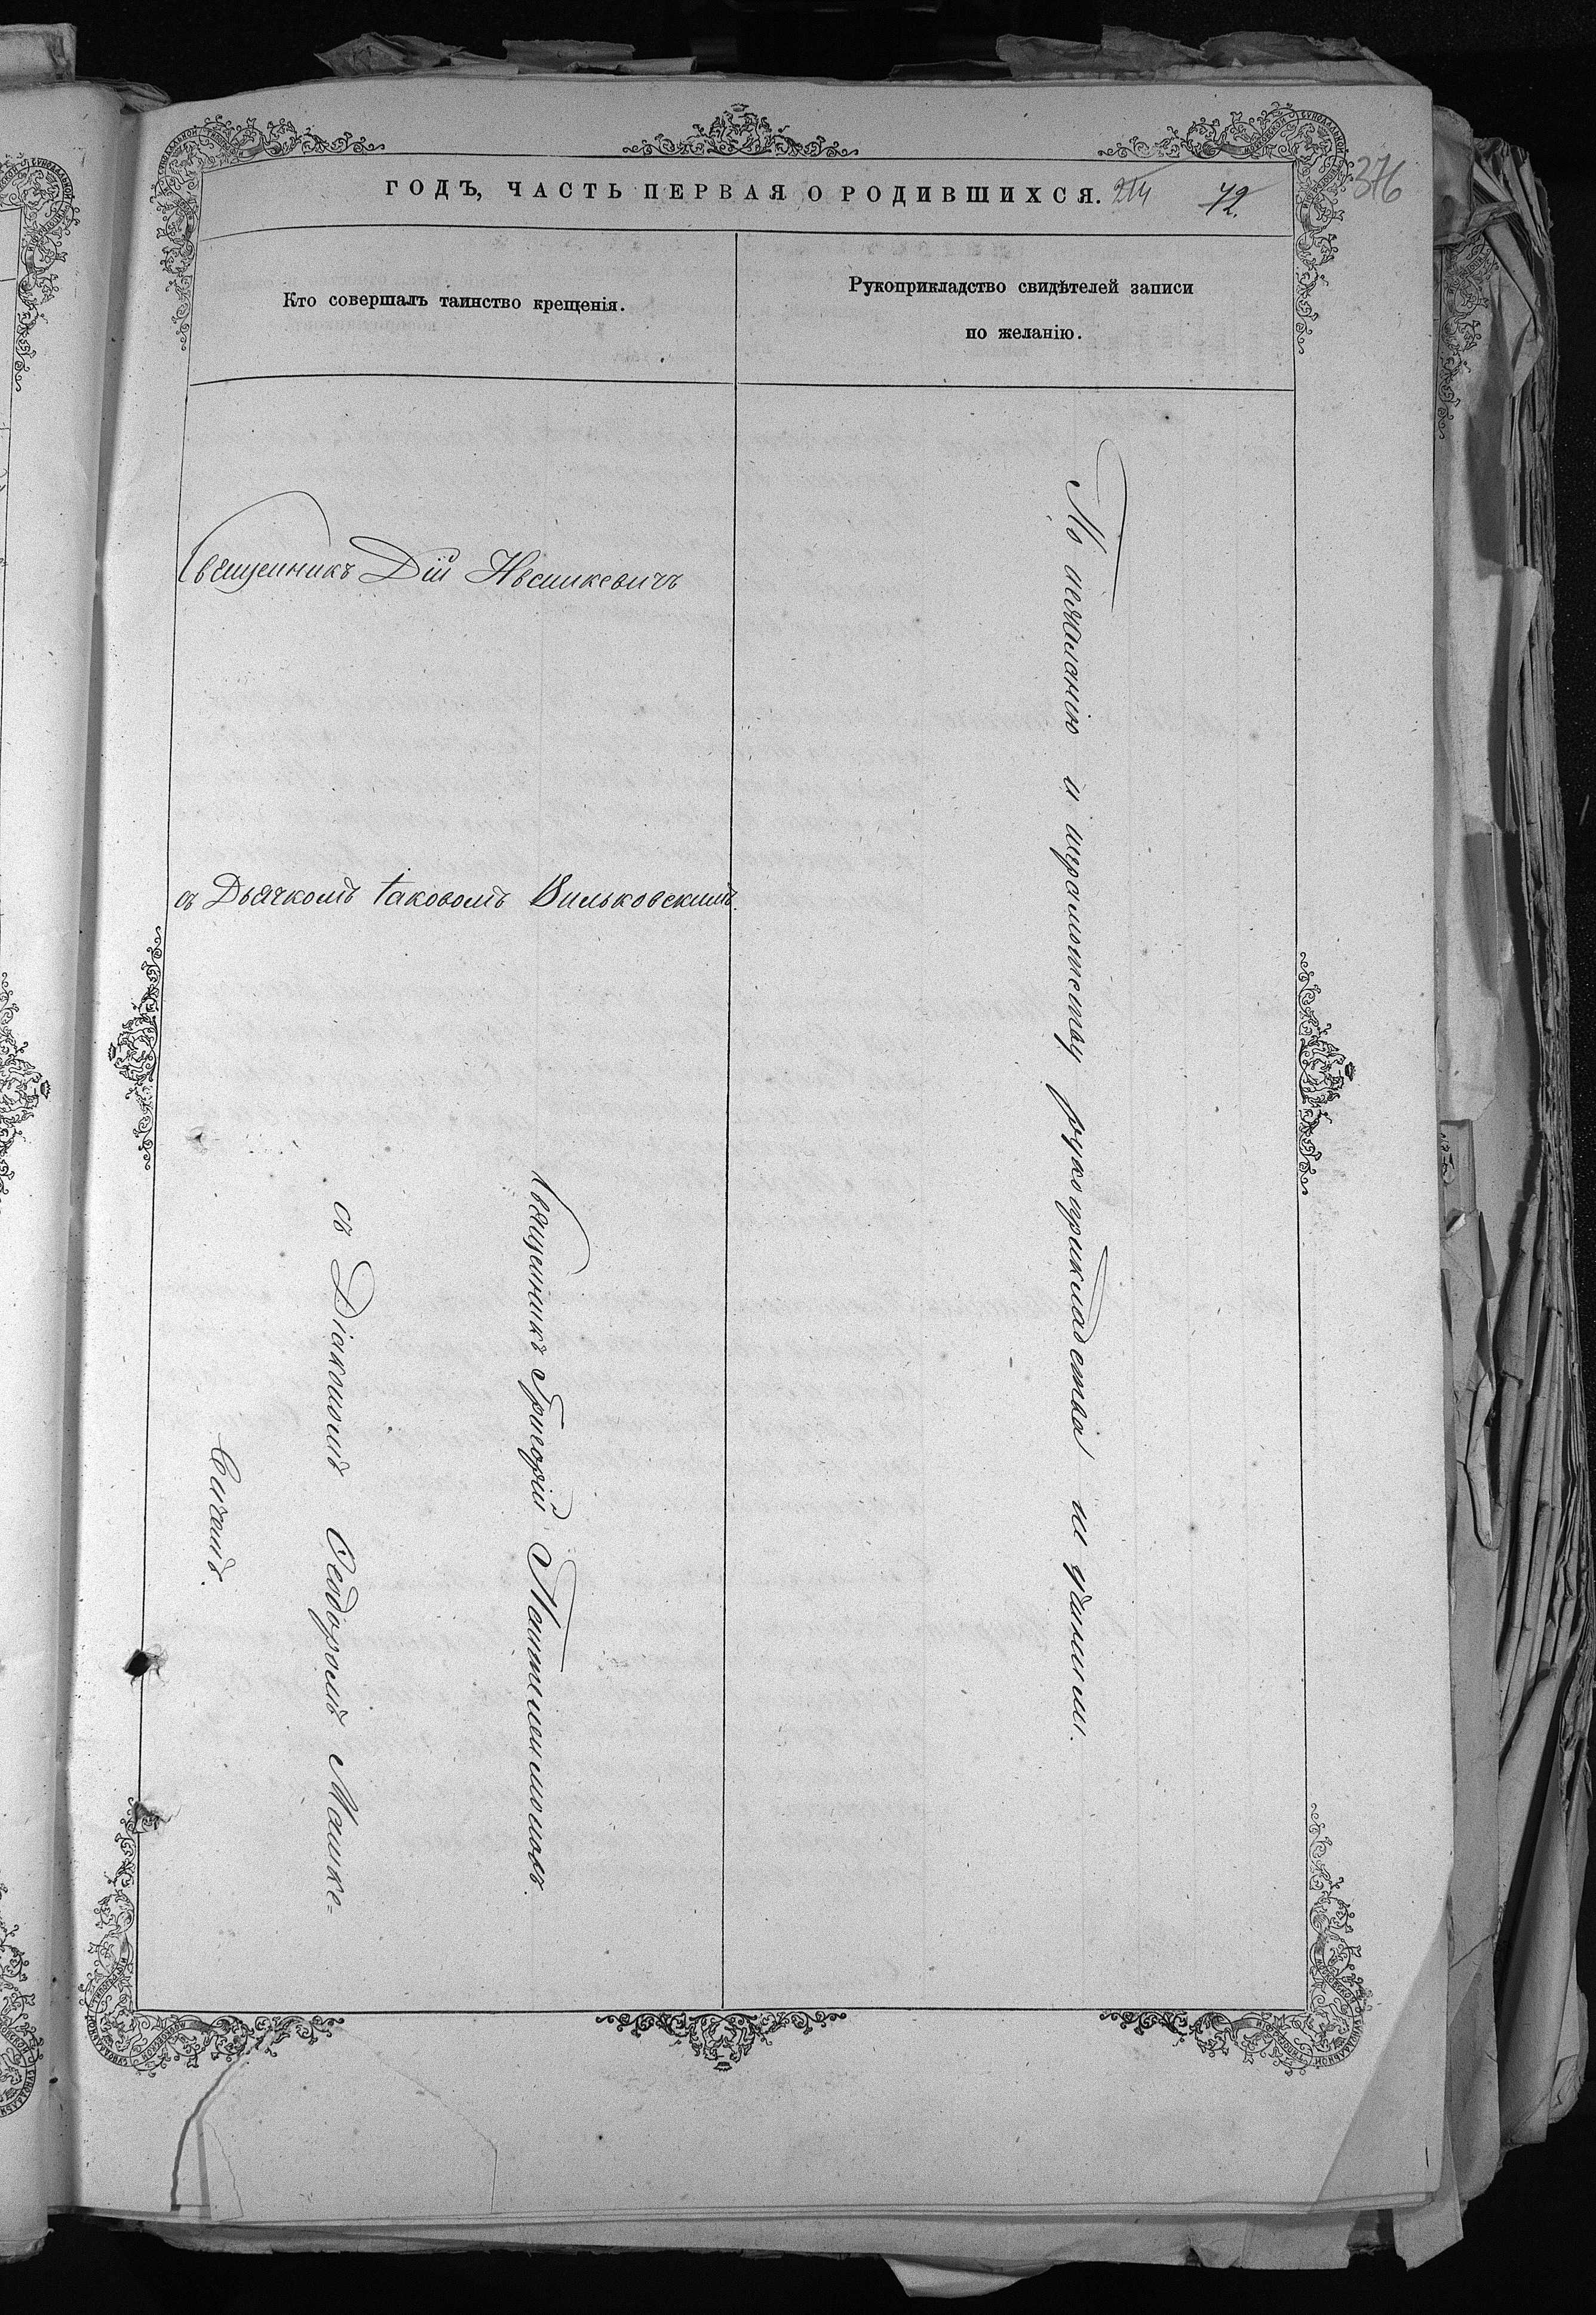 ГОДЪ, ЧАСТЬ ПЕРВАЯ О РОДИВШИХСЯ. 214 72.
376
Кто совершалъ таинство крещенія.
Рукоприкладство свидѣтелей записи
по желанію.
Священникъ Дій
съ Дьячкомъ Іаковомъ Вильковскимъ.
Священникъ Григорій
съ Діакономъ Ѳедоромъ Машке-
вичемъ.
По нежеланію и неграмотству рукоприкладства не учинили.